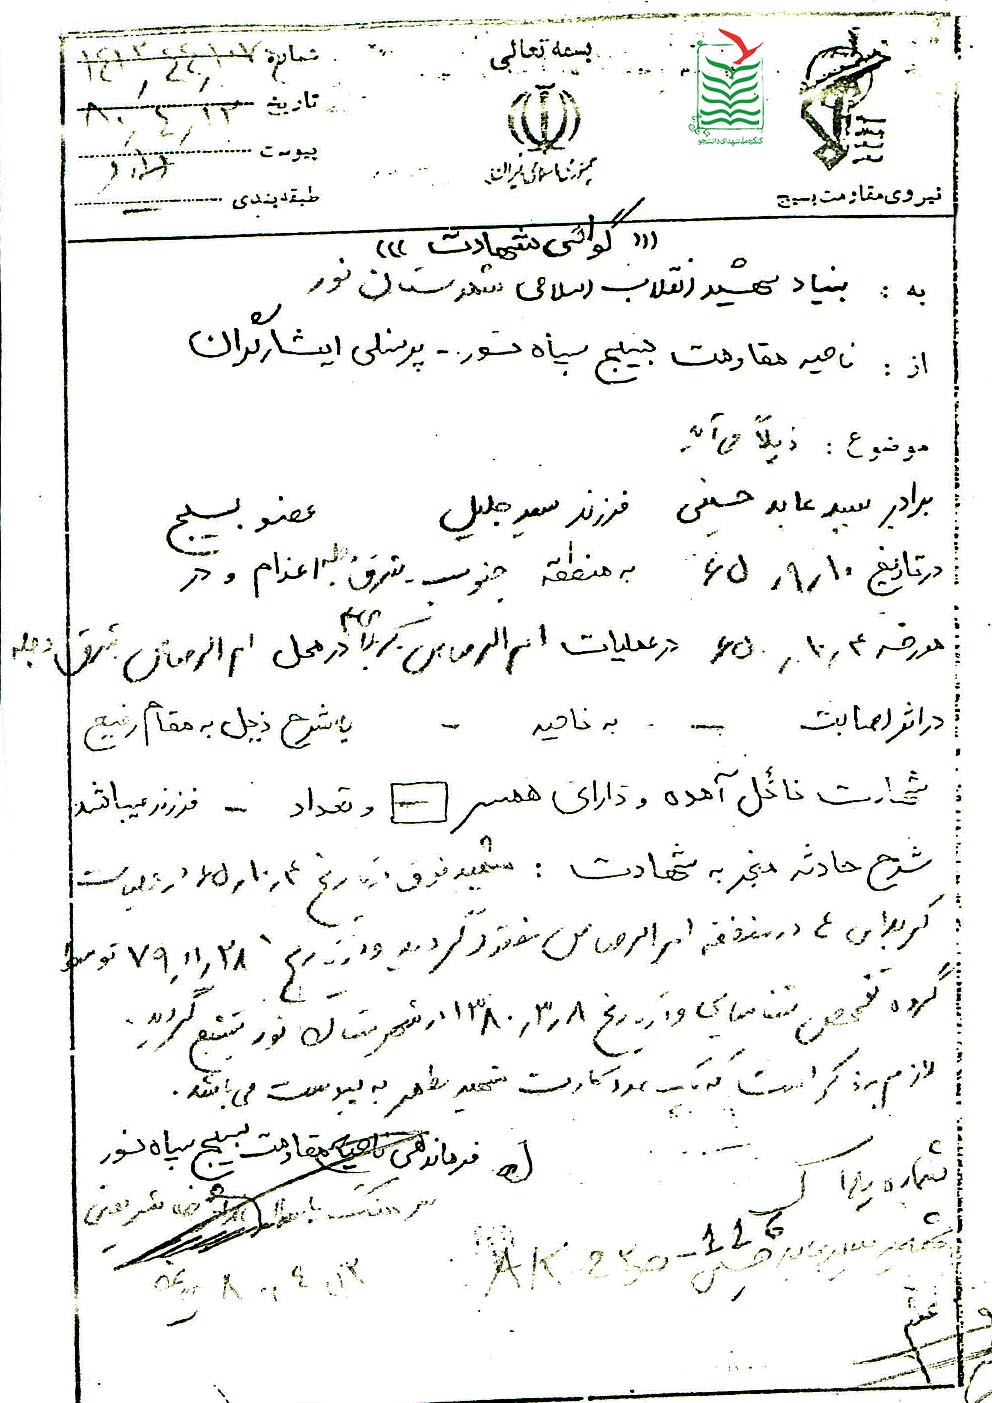 بسمه تعالی
شماره ۱۴۱۲٫۴۴٫۱۰۷
تاریخ ۸۰٫۴٫۱۳
پیوست دارد
طبقه بندی
جمهوری اسلامی ایران
کنگره ملی شهدای دانشجو
نیروی مقاومت بسیج
((( گواهی شهادت )))
به : بنیاد شهید انقلاب اسلامی شهرستان نور
از : ناحیه مقاومت بسیج سپاه نور - پرسنلی ایثارگران
موضوع : ذیلاً می آید
برادر سید عابد حسینی فرزند سید جلیل عضو بسیج
در تاریخ ۶۵٫۹٫۱۰ به منطقه جنوب - شرق دجله اعزام و در
مورخه ۶۵٫۱۰٫۴ در عملیات ام الرصاص کربلای ۴ در محل ام الرصاص شرق دجله
در اثر اصابت - به ناحیه - به شرح ذیل به مقام رفیع
شهادت نائل آمده و دارای همسر - و تعداد - فرزند میباشد
شرح حادثه منجر به شهادت : شهید فوق در تاریخ ۶۵٫۱۰٫۴ در عملیات
کربلای ۴ در منطقه ام الرصاص مفقود گردید و در تاریخ ۷۹٫۱۱٫۲۸ توسط
گروه تفحص شناسایی و در تاریخ ۱۳۸۰٫۳٫۸ در شهرستان نور تشییع گردید.
لازم بذکر است که یک عدد کارت شهید مطهر به پیوست می باشد.
فرماندهی ناحیه مقاومت بسیج سپاه نور
شماره پلاک
شهید سید عابد حسینی
AK 230-116
۸۰٫۴٫۱۳